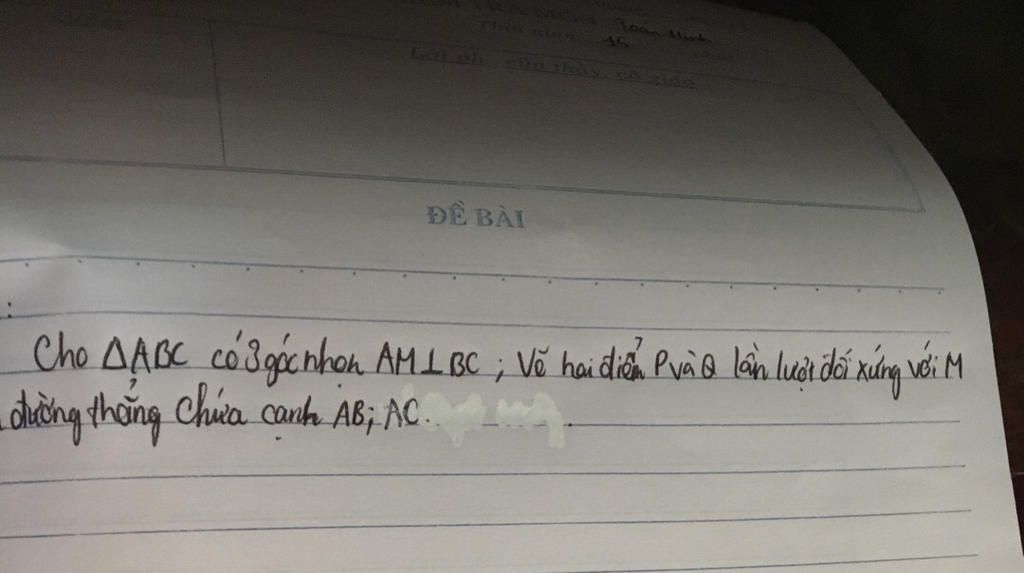 TRA MÔN: Toán Hình
Thời gian: 15 phút
Lời phê của thầy, cô giáo
ĐỀ BÀI
:
Cho ΔABC có 3 góc nhọn AM⊥BC ; Vẽ hai điểm P và Q lần lượt đối xứng với M
đường thẳng chứa cạnh AB; AC.